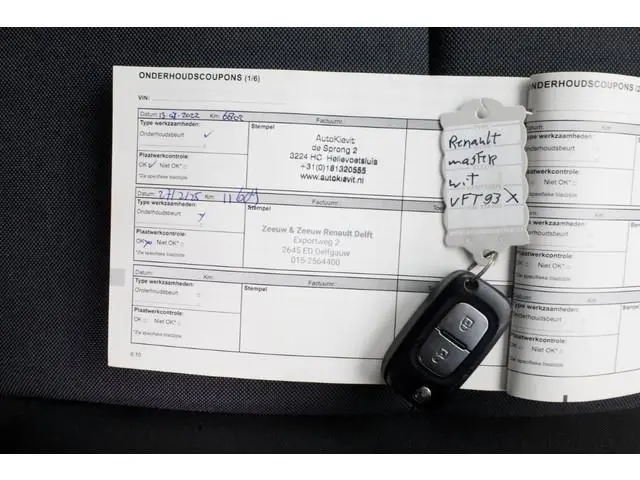 ONDERHOUDSCOUPONS (1/6)
VIN:
Datum: Km: 6802 Factuurnr.:
Type werkzaamheden:
Onderhoudsbeurt
Stempel
AutoKievit
de Sprong 2
3224 HC Hellevoetsluis
+31(0)181320555
www.autokievit.nl
Plaatwerkcontrole:
OK Niet OK*
*Zie specifieke bladzijde
Datum: Km: Factuurnr.:
Type werkzaamheden:
Onderhoudsbeurt
Stempel
Zeeuw & Zeeuw Renault Delft
Exportweg 2
2645 ED Delfgauw
015-2564400
Plaatwerkcontrole:
OK Niet OK*
*Zie specifieke bladzijde
Datum: Km: Factuurnr.:
Type werkzaamheden:
Onderhoudsbeurt
Stempel
Plaatwerkcontrole:
OK Niet OK*
*Zie specifieke bladzijde
6.10
Renault
master
wit
VFT93X
NDERHOUDSCOUPONS (2
Type werkzaamheden:
Onderhoudsbeurt
Stempel
Plaatwerkcontrole:
OK Niet OK*
*Zie specifieke bladzijde
Datum: Km:
Type werkzaamheden:
Onderhoudsbeurt
Stempel
Plaatwerkcontrole:
OK Niet OK*
*Zie specifieke bladzijde
Datum: Km:
Type werkzaamheden:
Onderhoudsbeurt
Stempel
Plaatwerkcontrole:
OK Niet OK*
*Zie specifieke bladzijde